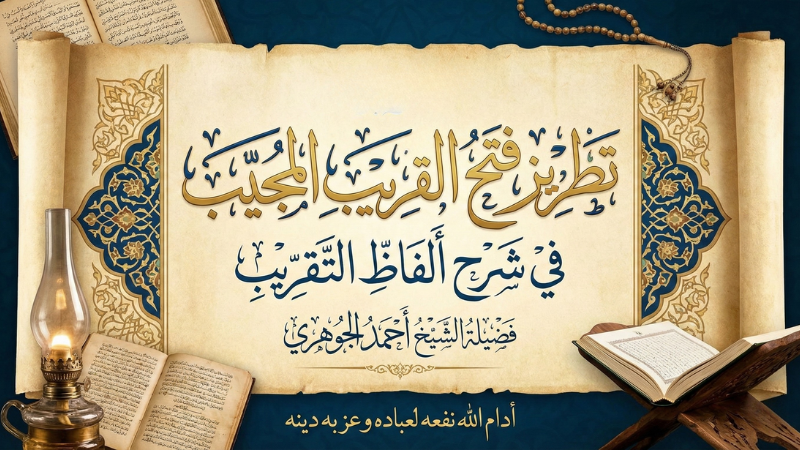 تَطْرِيز فَتْحُ القَرِيْبِ المُجُيَّب
فِيْ شَرْح أَلْفَاظِّ التَّقْرِّيْبِ
فَضِيْلَةُ الشَّيْخُ أَحْمَدُ الجُوْهَرِي
أدام الله نفعه لعباده وعز به دينه